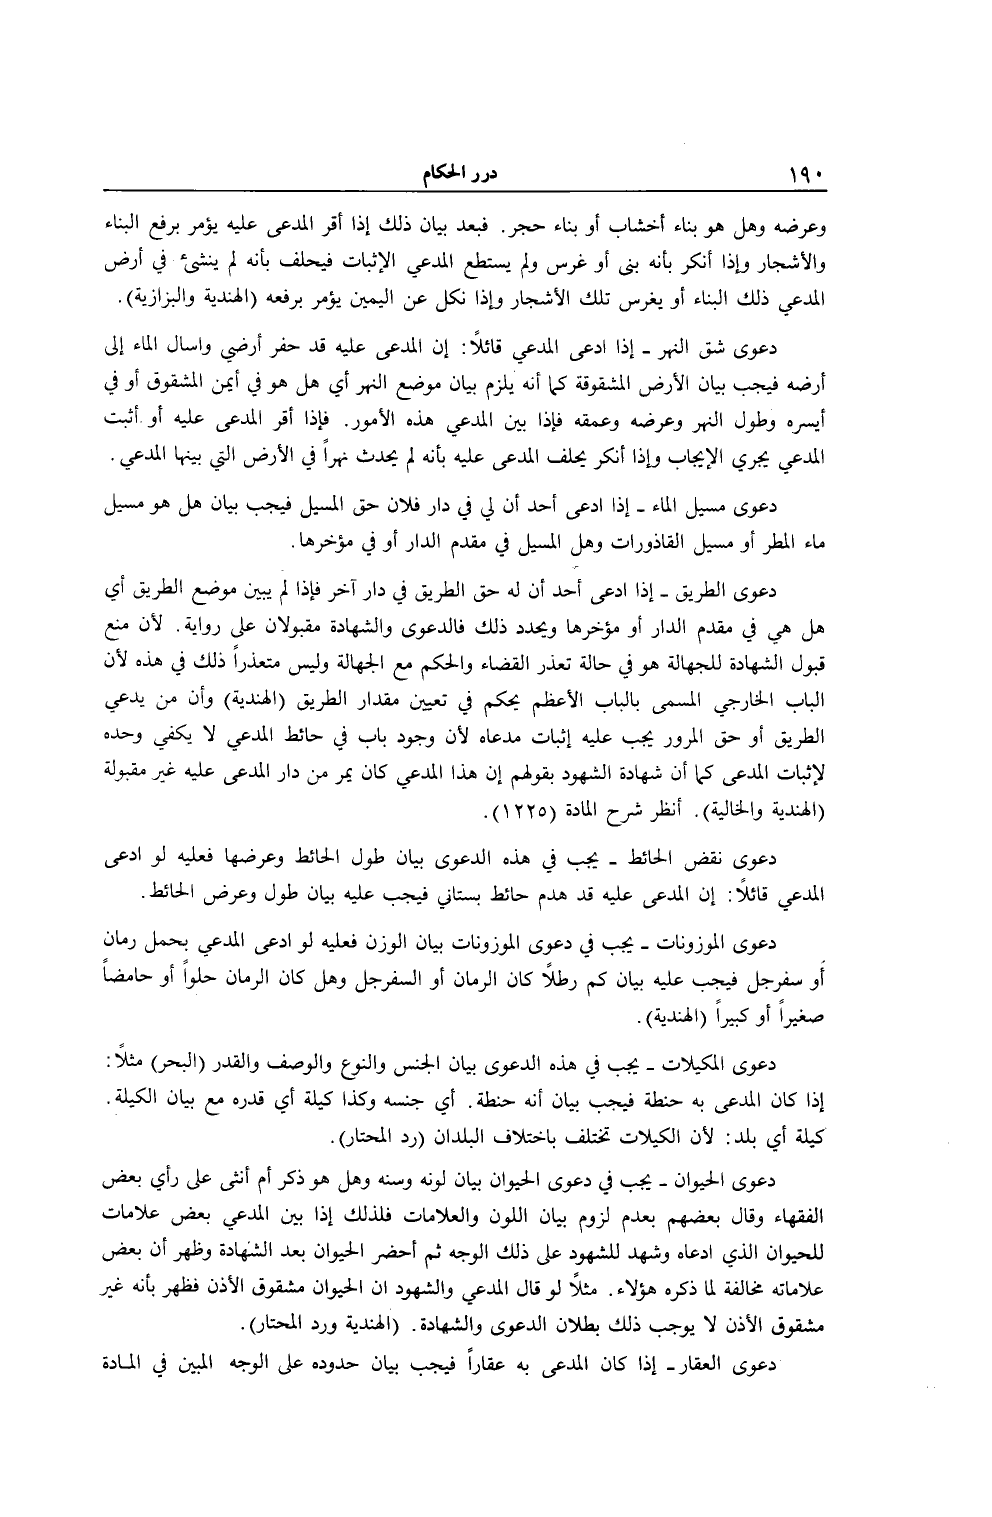 ١٩٠ درر الحكام
وعرضه وهل هو بناء أخشاب أو بناء حجر. فبعد بيان ذلك إذا أقر المدعى عليه يؤمر برفع البناء
والأشجار وإذا أنكر بأنه بنى أو غرس ولم يستطع المدعي الإثبات فيحلف بأنه لم ينشىء في أرض
المدعي ذلك البناء أو يغرس تلك الأشجار وإذا نكل عن اليمين يؤمر برفعه (الهندية والبزازية).
دعوى شق النهر ـ إذا ادعى المدعي قائلاً: إن المدعى عليه قد حفر أرضي واسال الماء إلى
أرضه فيجب بيان الأرض المشقوقة كما أنه يلزم بيان موضع النهر أي هل هو في أيمن المشقوق أو في
أيسره وطول النهر وعرضه وعمقه فإذا بين المدعي هذه الأمور. فإذا أقر المدعى عليه أو أثبت
المدعي يجري الإيجاب وإذا أنكر يحلف المدعى عليه بأنه لم يحدث نهراً في الأرض التي بينها المدعي.
دعوى مسيل الماء ـ إذا ادعى أحد أن لي في دار فلان حق المسيل فيجب بيان هل هو مسيل
ماء المطر أو مسيل القاذورات وهل المسيل في مقدم الدار أو في مؤخرها.
دعوى الطريق ـ إذا ادعى أحد أن له حق الطريق في دار آخر فإذا لم يبين موضع الطريق أي
هل هي في مقدم الدار أو مؤخرها ويحدد ذلك فالدعوى والشهادة مقبولان على رواية. لأن منع
قبول الشهادة للجهالة هو في حالة تعذر القضاء والحكم مع الجهالة وليس متعذراً ذلك في هذه لأن
الباب الخارجي المسمى بالباب الأعظم يحكم في تعيين مقدار الطريق (الهندية) وأن من يدعي
الطريق أو حق المرور يجب عليه إثبات مدعاه لأن وجود باب في حائط المدعي لا يكفي وحده
لإثبات المدعى كما أن شهادة الشهود بقولهم إن هذا المدعي كان يمر من دار المدعى عليه غير مقبولة
(الهندية والخالية). أنظر شرح المادة (١٢٢٥).
دعوى نقض الحائط ـ يجب في هذه الدعوى بيان طول الحائط وعرضها فعليه لو ادعى
المدعي قائلاً: إن المدعى عليه قد هدم حائط بستاني فيجب عليه بيان طول وعرض الحائط.
دعوى الموزونات ـ يجب في دعوى الموزونات بيان الوزن فعليه لو ادعى المدعي بحمل رمان
أو سفرجل فيجب عليه بيان كم رطلاً كان الرمان أو السفرجل وهل كان الرمان حلواً أو حامضاً
صغيراً أو كبيراً (الهندية).
دعوى المكيلات ـ يجب في هذه الدعوى بيان الجنس والنوع والوصف والقدر (البحر) مثلاً:
إذا كان المدعى به حنطة فيجب بيان أنه حنطة. أي جنسه وكذا كيلة أي قدره مع بيان الكيلة.
كيلة أي بلد: لأن الكيلات تختلف باختلاف البلدان (رد المحتار).
دعوى الحيوان ـ يجب في دعوى الحيوان بيان لونه وسنه وهل هو ذكر أم أنثى على رأي بعض
الفقهاء وقال بعضهم بعدم لزوم بيان اللون والعلامات فلذلك إذا بين المدعي بعض علامات
للحيوان الذي ادعاه وشهد للشهود على ذلك الوجه ثم أحضر الحيوان بعد الشهادة وظهر أن بعض
علاماته مخالفة لما ذكره هؤلاء. مثلاً لو قال المدعي والشهود ان الحيوان مشقوق الأذن فظهر بأنه غير
مشقوق الأذن لا يوجب ذلك بطلان الدعوى والشهادة. (الهندية ورد المحتار).
دعوى العقار ـ إذا كان المدعى به عقاراً فيجب بيان حدوده على الوجه المبين في المادة